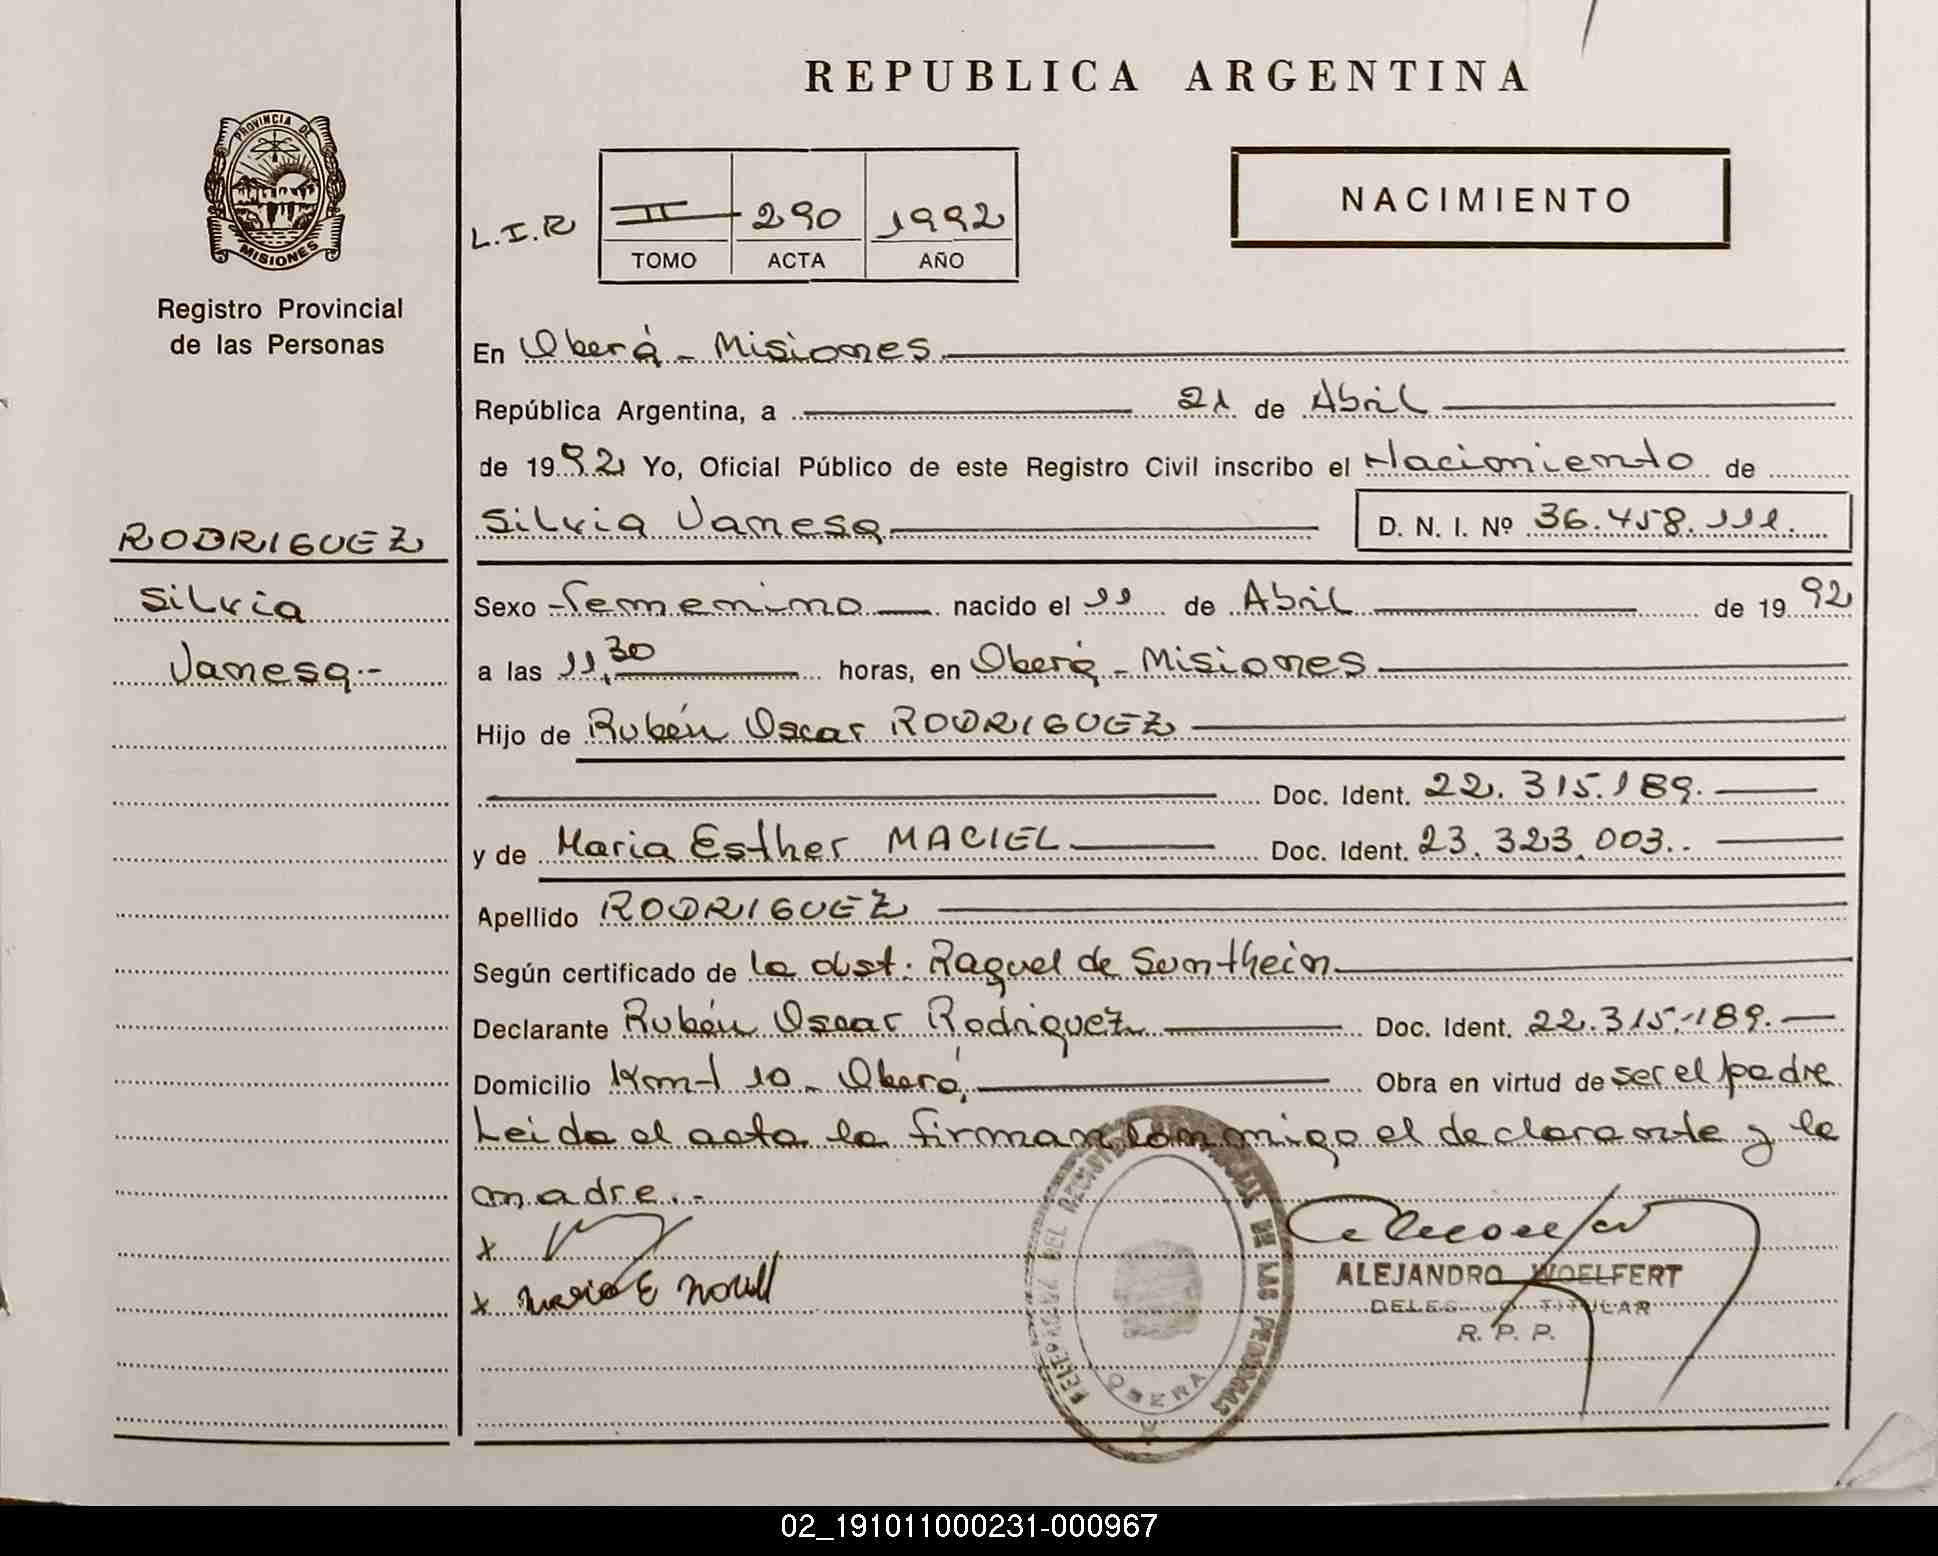 REPUBLICA ARGENTINA
PROVINCIA DE MISIONES
Registro Provincial
de las Personas
L.I.R
II 290 1992
TOMO ACTA AÑO
NACIMIENTO
En Oberá - Misiones
República Argentina, a 21 de Abril
de 1992 Yo, Oficial Público de este Registro Civil inscribo el Nacimiento de
Silvia Vanesa D. N. I. Nº 36.458.111.
RODRIGUEZ
Silvia
Vanesa.-
Sexo femenino nacido el 11 de Abril de 1992
a las 11,30 horas, en Oberá - Misiones
Hijo de Rubén Oscar RODRIGUEZ
Doc. Ident. 22.315.189.
y de Maria Esther MACIEL Doc. Ident. 23.323.003.
Apellido RODRIGUEZ
Según certificado de la obst. Raquel de
Declarante Rubén Oscar Rodriguez Doc. Ident. 22.315.189.
Domicilio Km 10 - Oberá, Obra en virtud de ser el padre
Leida el acta la firman conmigo el declarante y la
madre.-
x
x Maria E
ALEJANDRO WOELFERT
DELEGADO TITULAR
R. P. P.
DEL REGISTRO PROVINCIAL DE LAS PERSONAS
OBERA
02_191011000231-000967